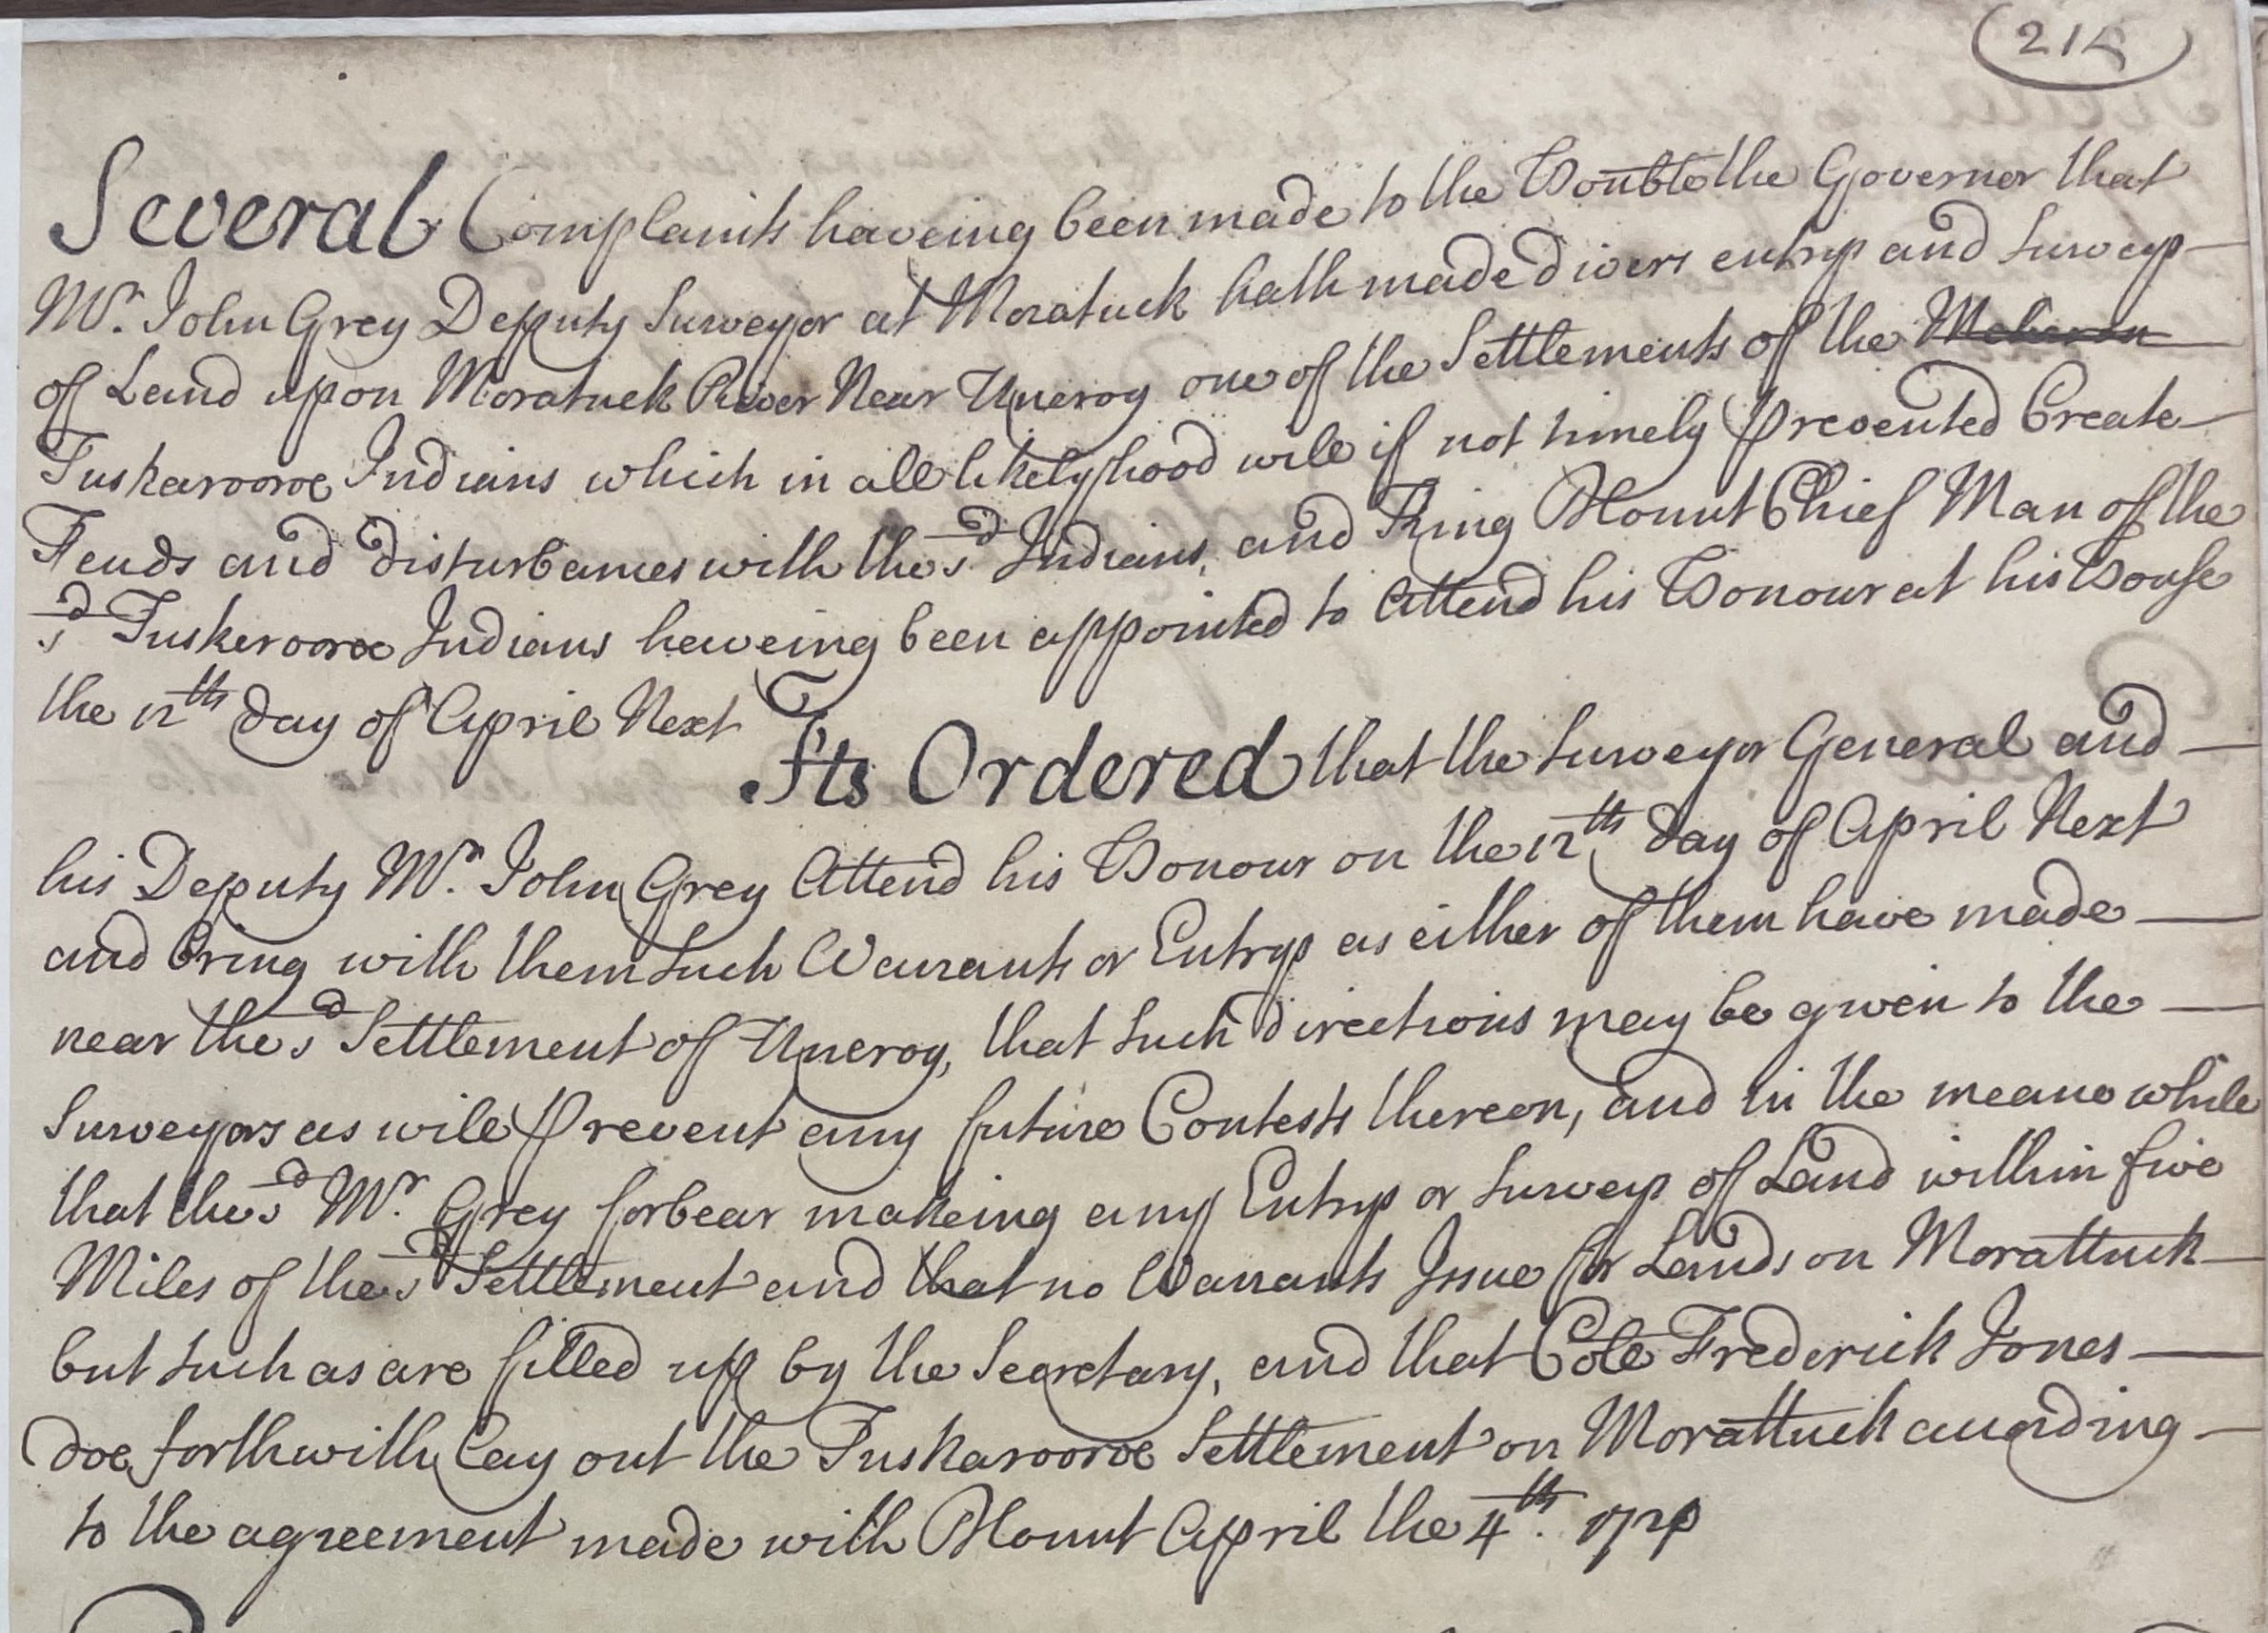 (214
Several Complaints haveing been made to the Honble the Governor that
Mr. John Grey Deputy Surveyor at Moratuck hath made divers entrys and Surveys
of Land upon Moratuck River Near Uneroy one of the Settlements of the Meheron
Tuskarooroe Indians which in all likelyhood will if not timely prevented Create
Feuds and disturbances with the sd Indians, and King Blount Chief Man of the
sd Tuskerooroe Indians haveing been appointed to Attend his Honour at his House
the 12th day of April Next
Its Ordered that the Surveyor General and
his Deputy Mr. John Grey Attend his Honour on the 12th day of April Next
and bring with them Such Warrants or Entrys as either of them have made
near the sd Settlement of Uneroy, that Such directions may be given to the
Surveyors as will prevent any future Contests thereon, and in the meane while
that the sd Mr. Grey forbear makeing any Entrys or Surveys of Land within five
Miles of the sd Settlement and that no Warrants Issue for Lands on Morattuck
but Such as are filled up by the Secretary, and that Colo Frederick Jones
doe forthwith lay out the Tuskarooroe Settlement on Morattuck according
to the agreement made with Blount April the 4th.